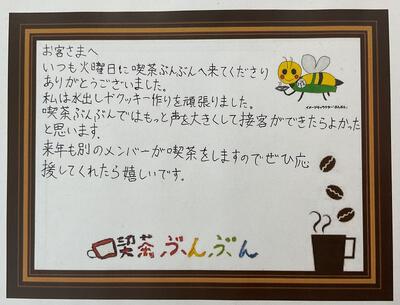 お客さまへ
いつも火曜日に喫茶ぶんぶんへ来てくださり
ありがとうございました。
私は水出しやクッキー作りを頑張りました。
喫茶ぶんぶんではもっと声を大きくして接客ができたらよかった
と思います。
来年も別のメンバーが喫茶をしますのでぜひ応
援してくれたら嬉しいです。
イメージキャラクター「ぶんぶん」
喫茶ぶんぶん